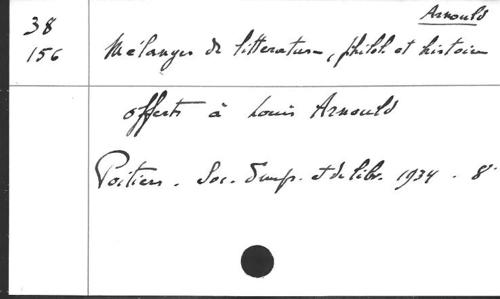 Arnould
38
156
Mélanges de litterature, philol. et histoire
offerts à Louis Arnould
Poitiers. Soc. d'imp. et de libr. 1934. 8°